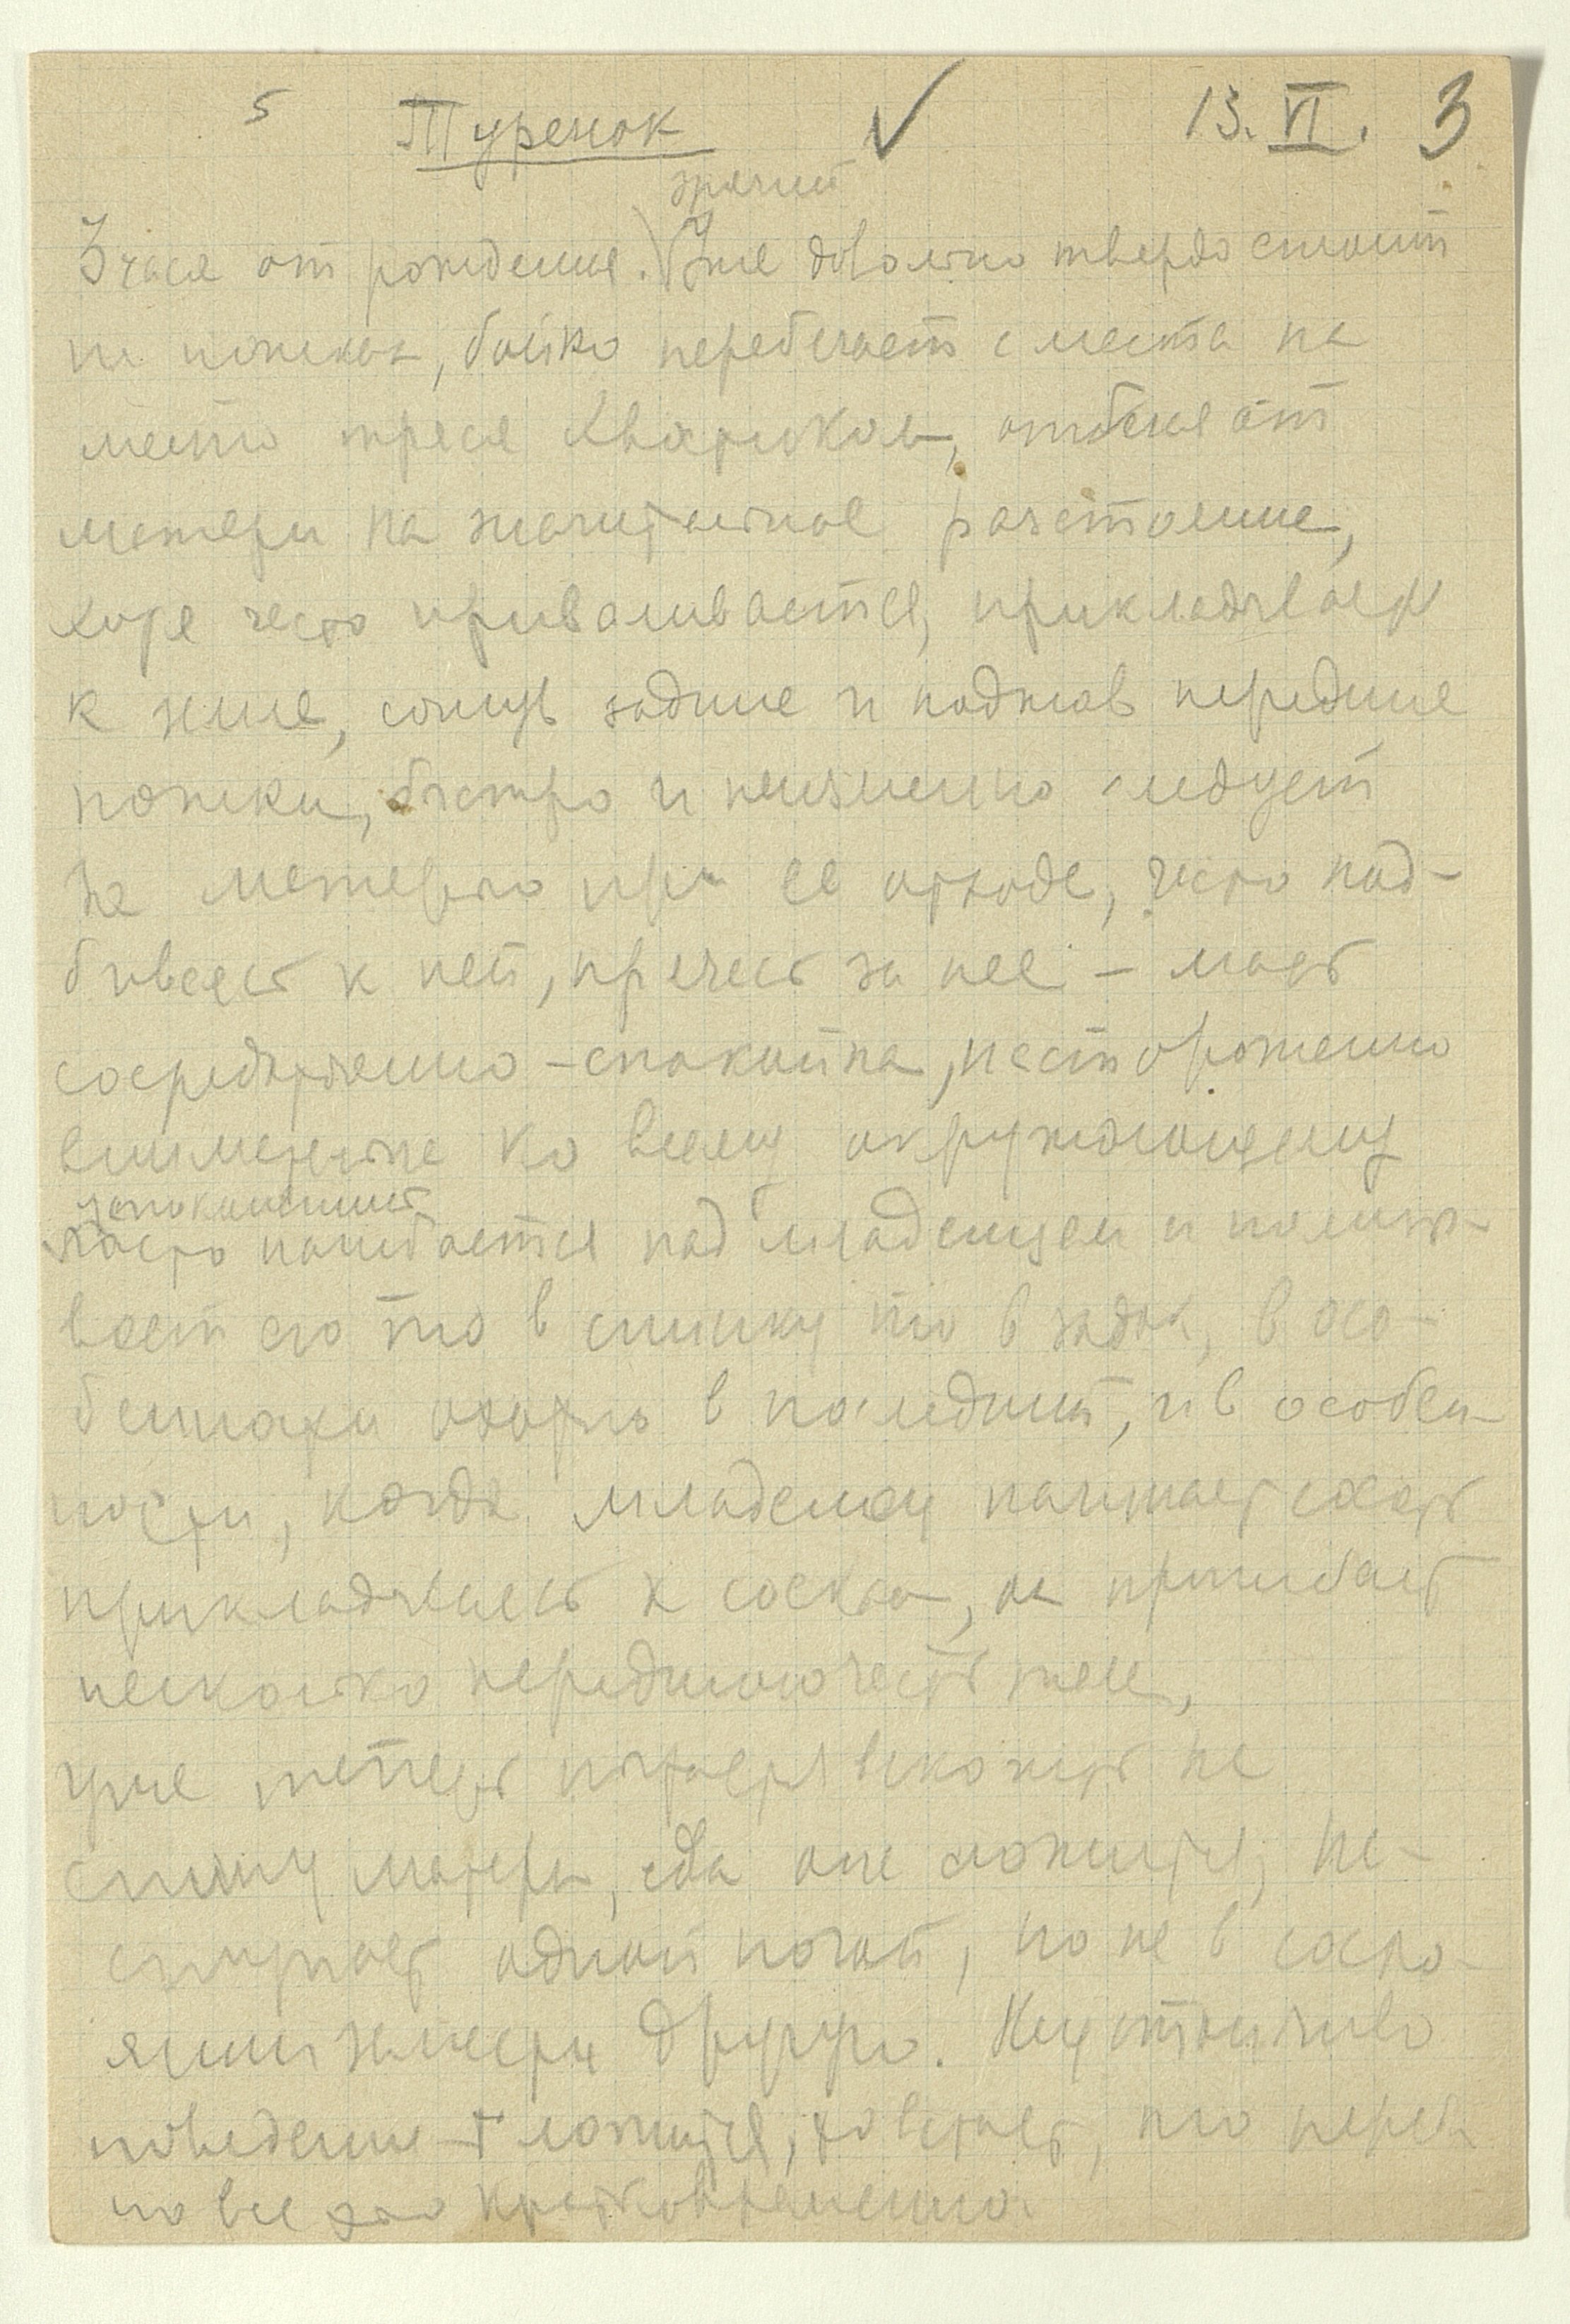 5 Туренок ✓ 13.VI. 3
зрячий
3 часа от рождения. Уже довольно твердо стоит
на ножках, бойко перебегает с места на
место тряся хвостиком, отбегая от
матери на значительное расстояние,
хотя часто приваливается, прикладывается
к земле, согнув задние и поджав передние
ножки, быстро и неизменно следует
за матерью при ее отходе, часто под-
биваясь к ней, прячась за нее – мать
сосредоточенно-спокойна, настороженно
внимательна ко всему окружающему
успокоившись
часто нагибается над младенцем и полизы-
вает его то в спинку то в задок, в осо-
бенности охотно в последний, и в особен-
ности, когда младенец начинает сосать
прикладываясь к соскам, он пригибает
несколько переднюю часть тела,
уже теперь пытается вскочить на
спину матери, едва она ложится, на-
ступает одной ногой, но не в состо-
янии занести другую. Неустойчиво
поведение – то ложится, то встает, то
но все это кратковременно.